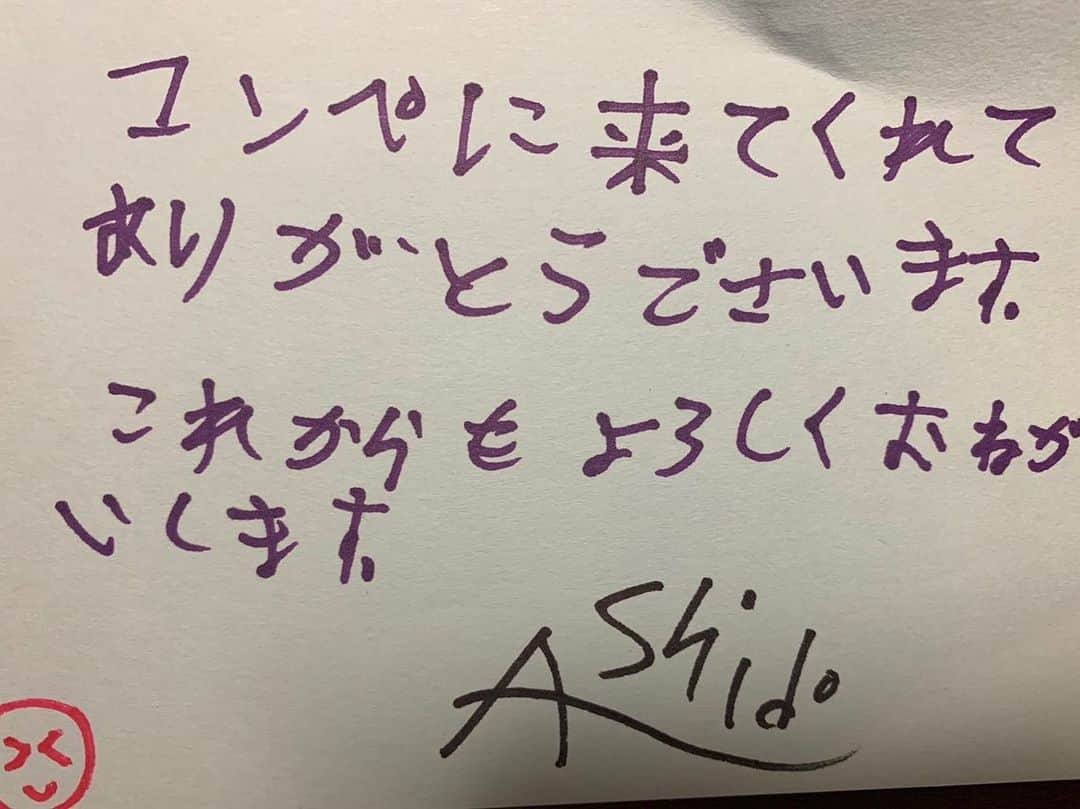 コンペに来てくれて
ありがとうでさいます。
これからもよろしくおねが
いします。
AShido